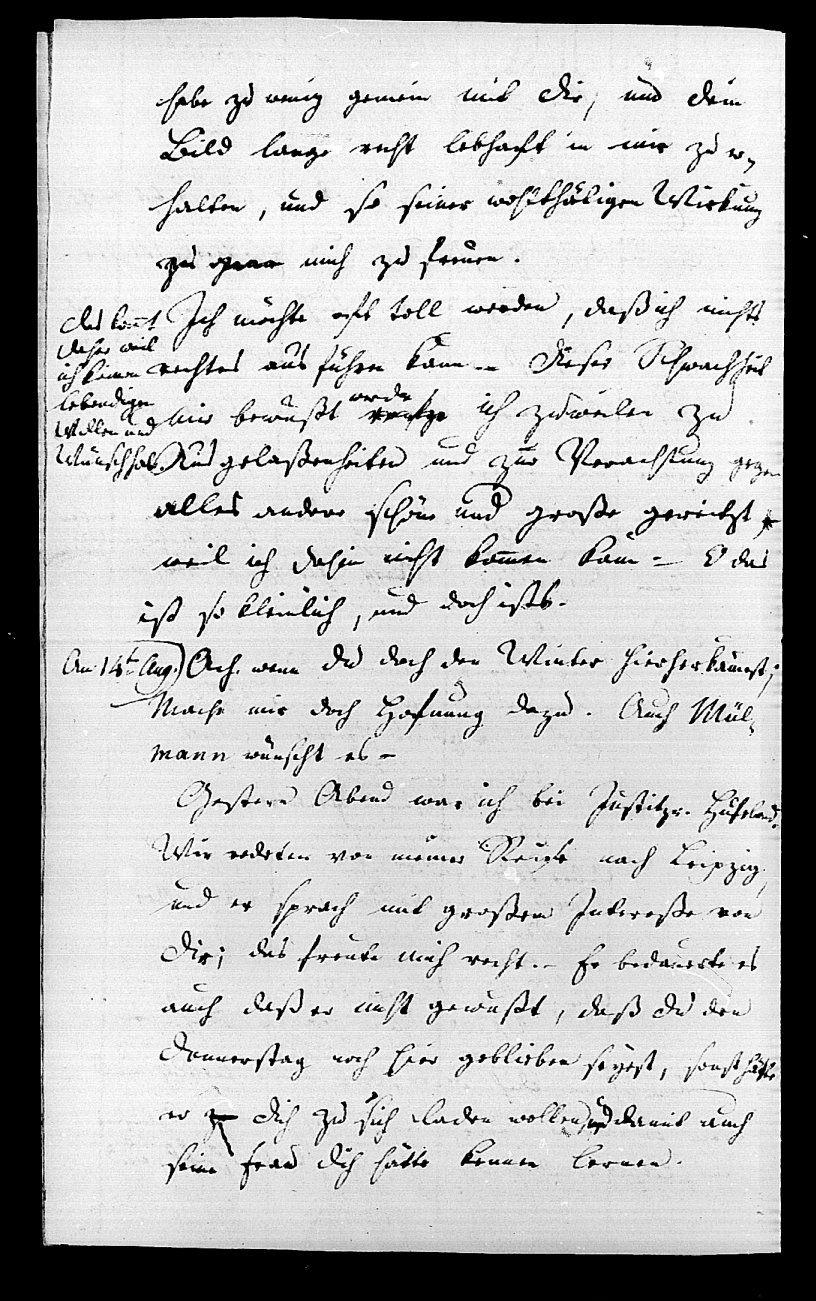 habe zu wenig gemein mit dir, um dein
Bild lange recht lebhaft in mir zu er-
halten, und so seiner wohlthätigen Wirkung
zu mich zu freuen.
Ich möchte oft toll werden, daß ich nichts
rechtes ausführen kann – dieser Schwachheit
mir bewußt werde ich zuweilen zu
Ausgelaßenheiten und zur Verachtung gegen
alles andere schöne und große gereitzt,
weil ich dahin nicht kommen kann – O das
ist so kleinlich, und doch ists.
das komt
daher weil
ich keinen
lebendigen
Willen und
Wunsch habe
Am 14t Aug.) Ach wenn du doch den Winter hierherkämest;
Mache mir doch Hofnung dazu. Auch Mül-
mann wünscht es –
Gestern Abend war ich bei Justitzr. Hufeland.
Wir redeten von meiner Reise nach Leipzig,
und er sprach mit großem Intereße von
Dir; das freute mich recht. – Er bedauerte es
auch daß er nicht gewußt, daß du den
Donnerstag noch hier geblieben seyest, sonst hätte
er dich zu sich laden wollen und damit auch
seine Frau dich hätte kennen lernen.